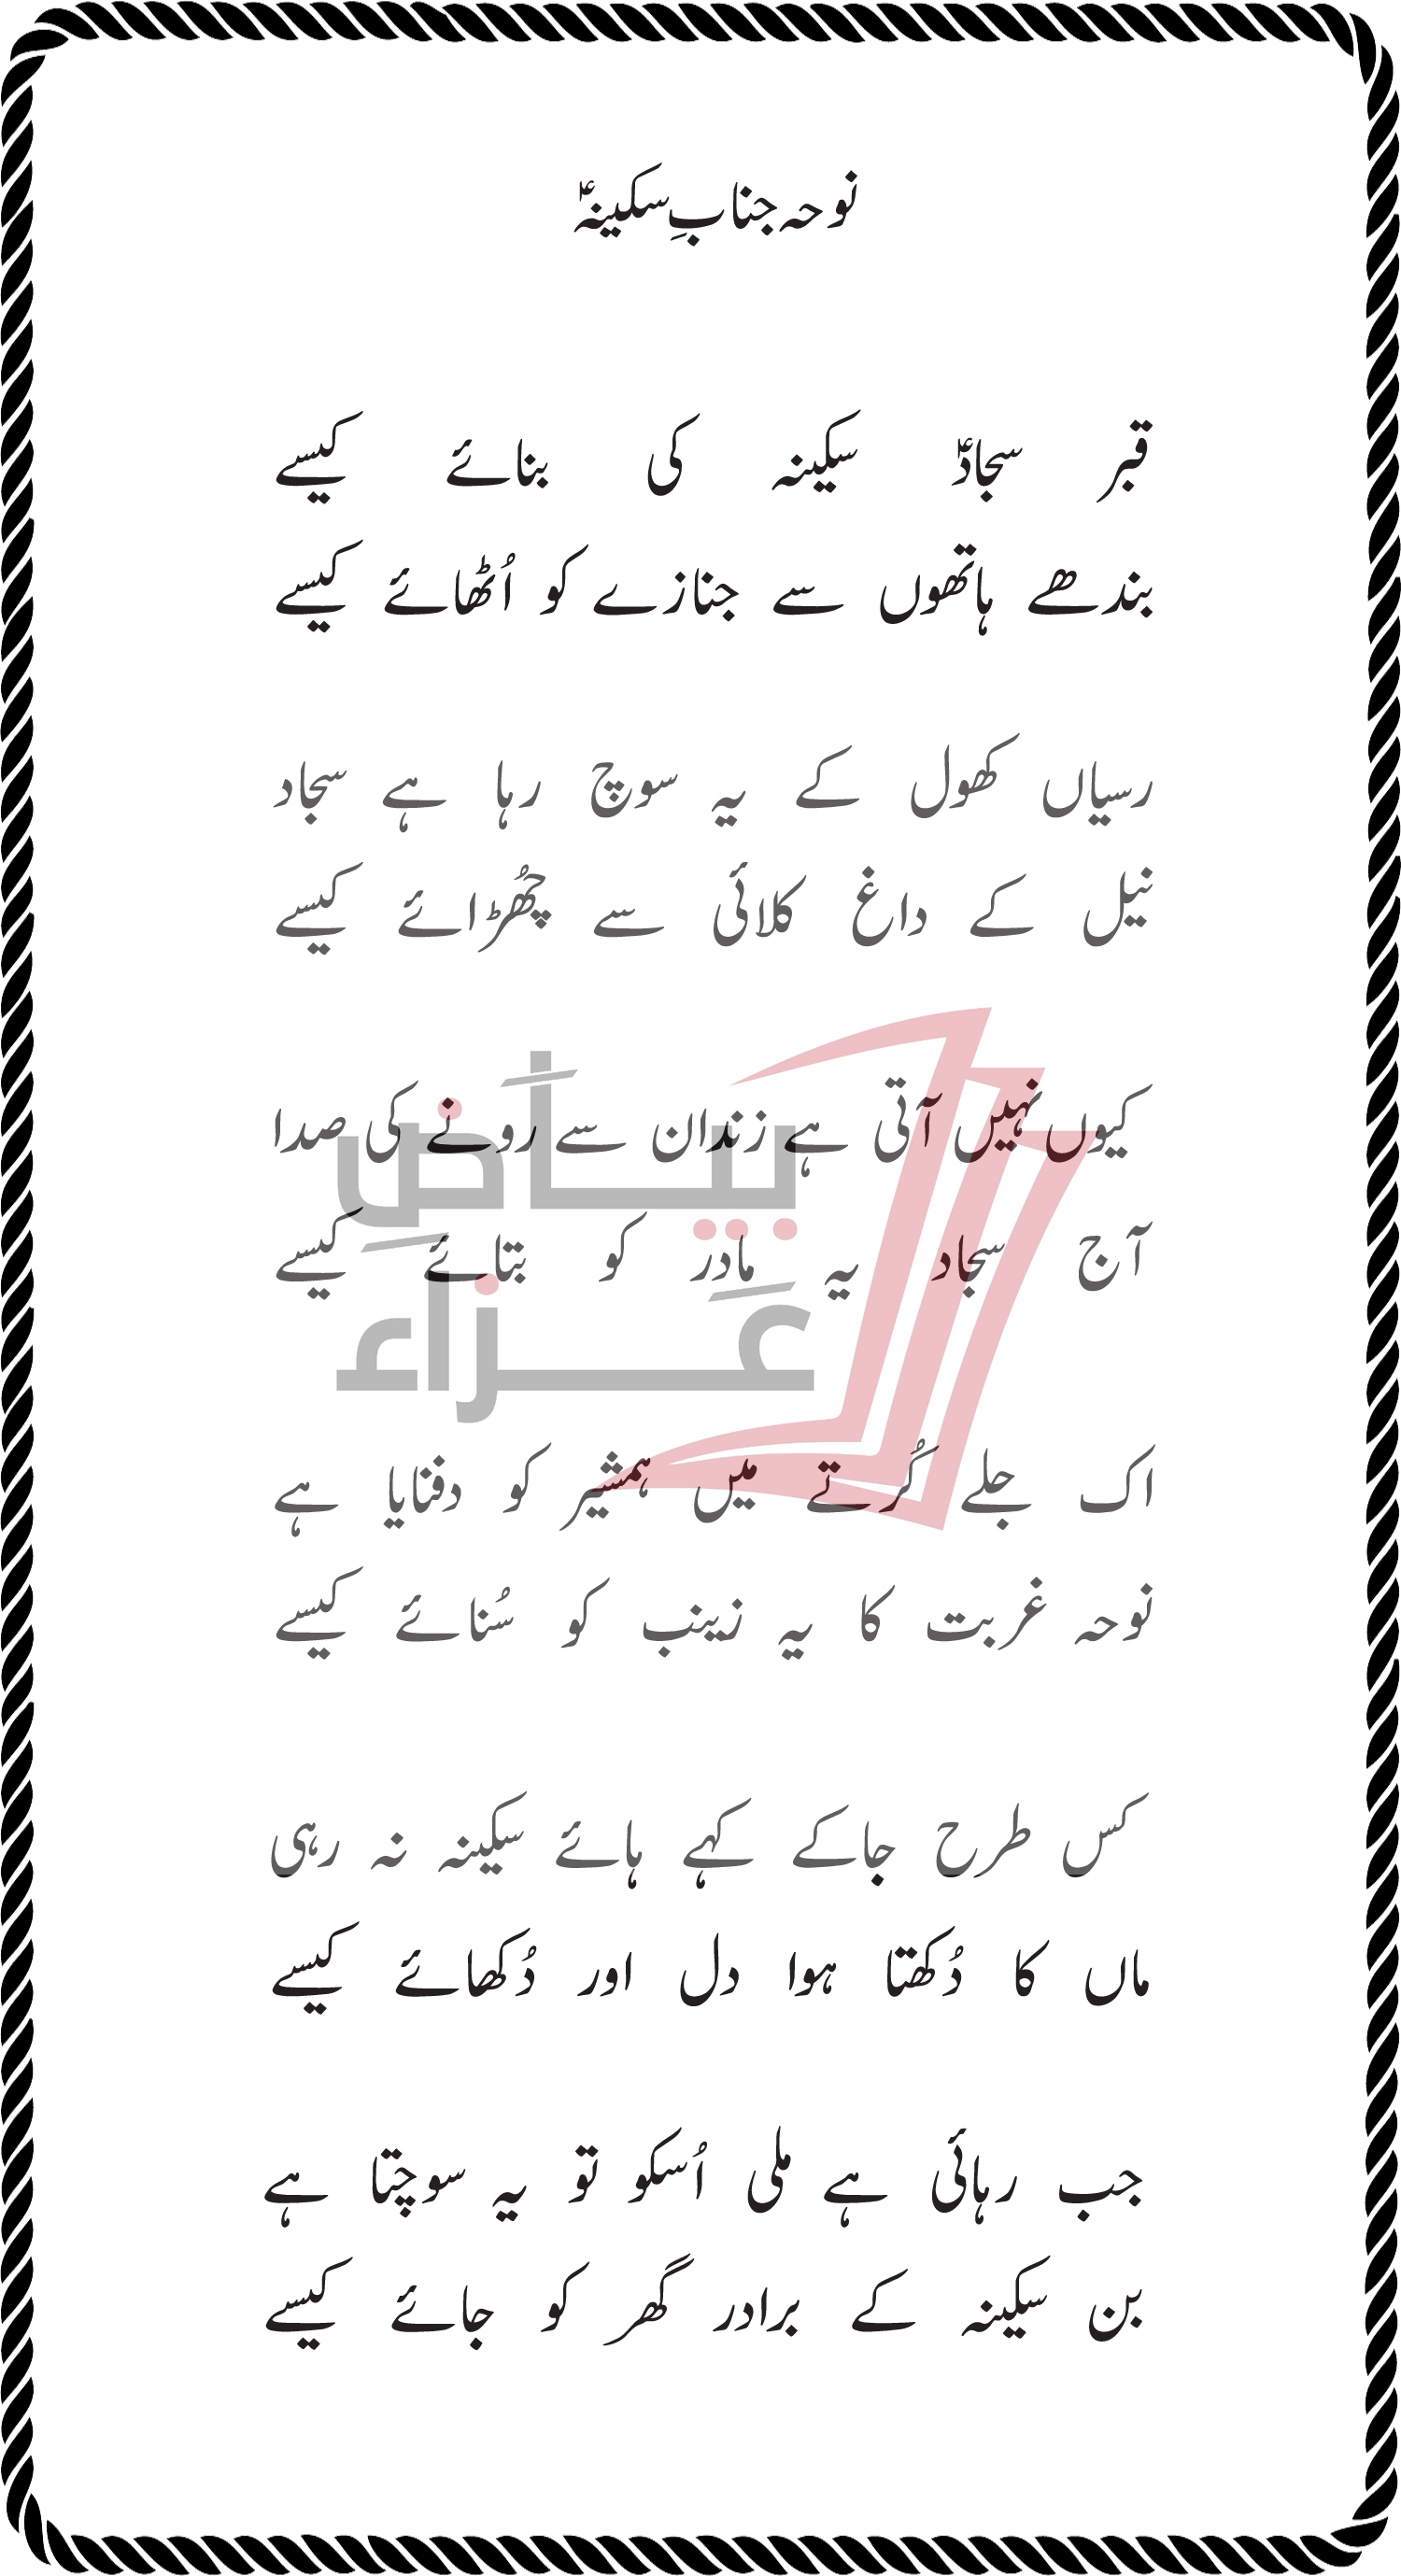 نوحہ جنابِ سکینہؑ
قبر سجادؑ سکینہ کی بنائے کیسے
بندھے ہاتھوں سے جنازے کو اُٹھائے کیسے
رسیاں کھول کے یہ سوچ رہا ہے سجاد
نیل کے داغ کلائی سے چھُڑائے کیسے
کیوں نہیں آتی ہے زندان سے رونے کی صدا
آج سجاد یہ مادر کو بتائے کیسے
بیاضِ
عزاء
اک جلے کُرتے میں ہمشیر کو دفنایا ہے
نوحہ غربت کا یہ زینب کو سُنائے کیسے
کس طرح جاکے کہے ہائے سکینہ نہ رہی
ماں کا دُکھتا ہوا دل اور دُکھائے کیسے
جب رہائی ہے ملی اُسکو تو یہ سوچتا ہے
بن سکینہ کے برادر گھر کو جائے کیسے